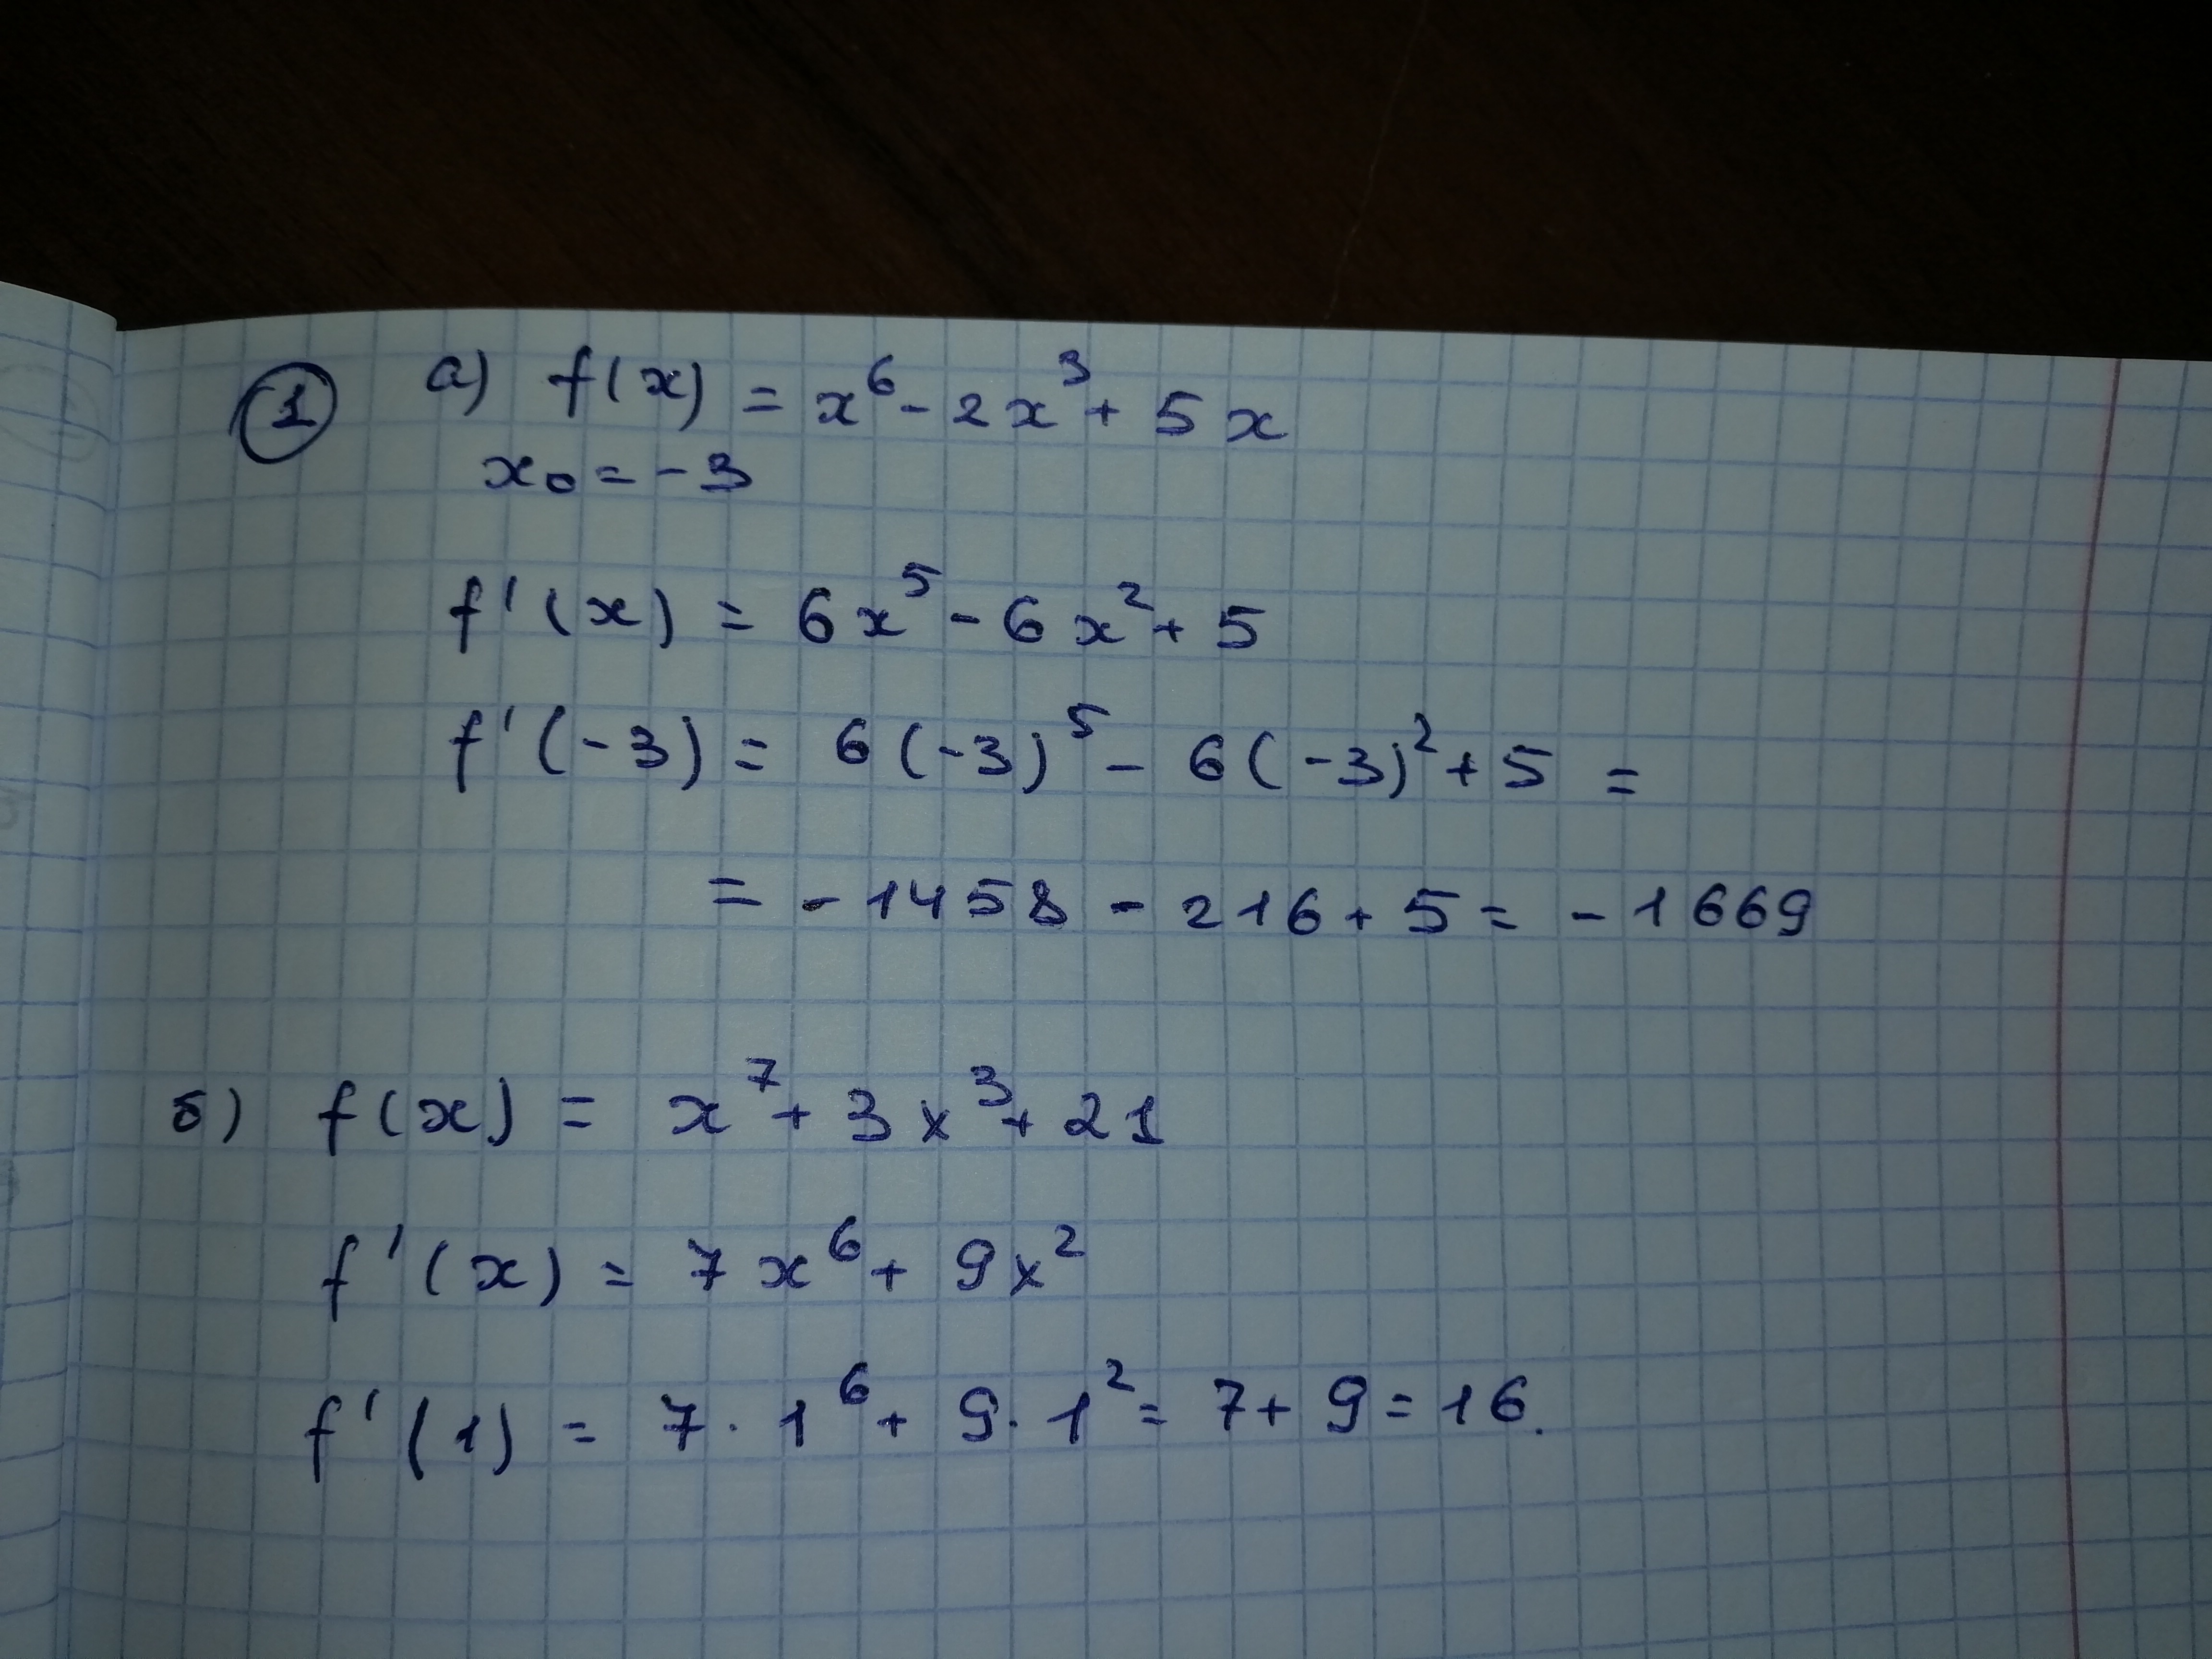 1 а) f(x) = x⁶ - 2x³ + 5x
x₀ = -3
f'(x) = 6x⁵ - 6x² + 5
f'(-3) = 6(-3)⁵ - 6(-3)² + 5 =
= - 1458 - 216 + 5 = - 1669
б) f(x) = x⁷ + 3x³ + 21
f'(x) = 7x⁶ + 9x²
f'(1) = 7 · 1⁶ + 9 · 1² = 7 + 9 = 16.